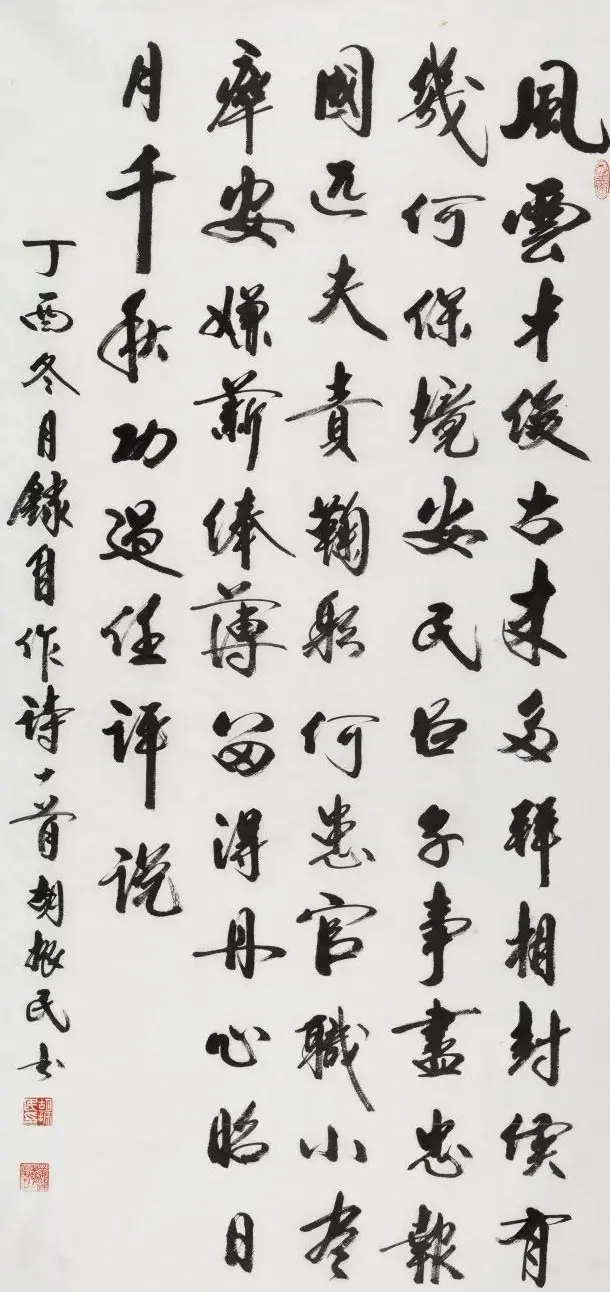 風雲才俊古来多拜相封侯有
幾何保境安民臣子事盡忠報
國匹夫責鞠躬何患官職小尽
瘁安嫌薪俸薄留得丹心昭日
月千秋功過任评说
丁酉冬月録自作诗一首胡振民书